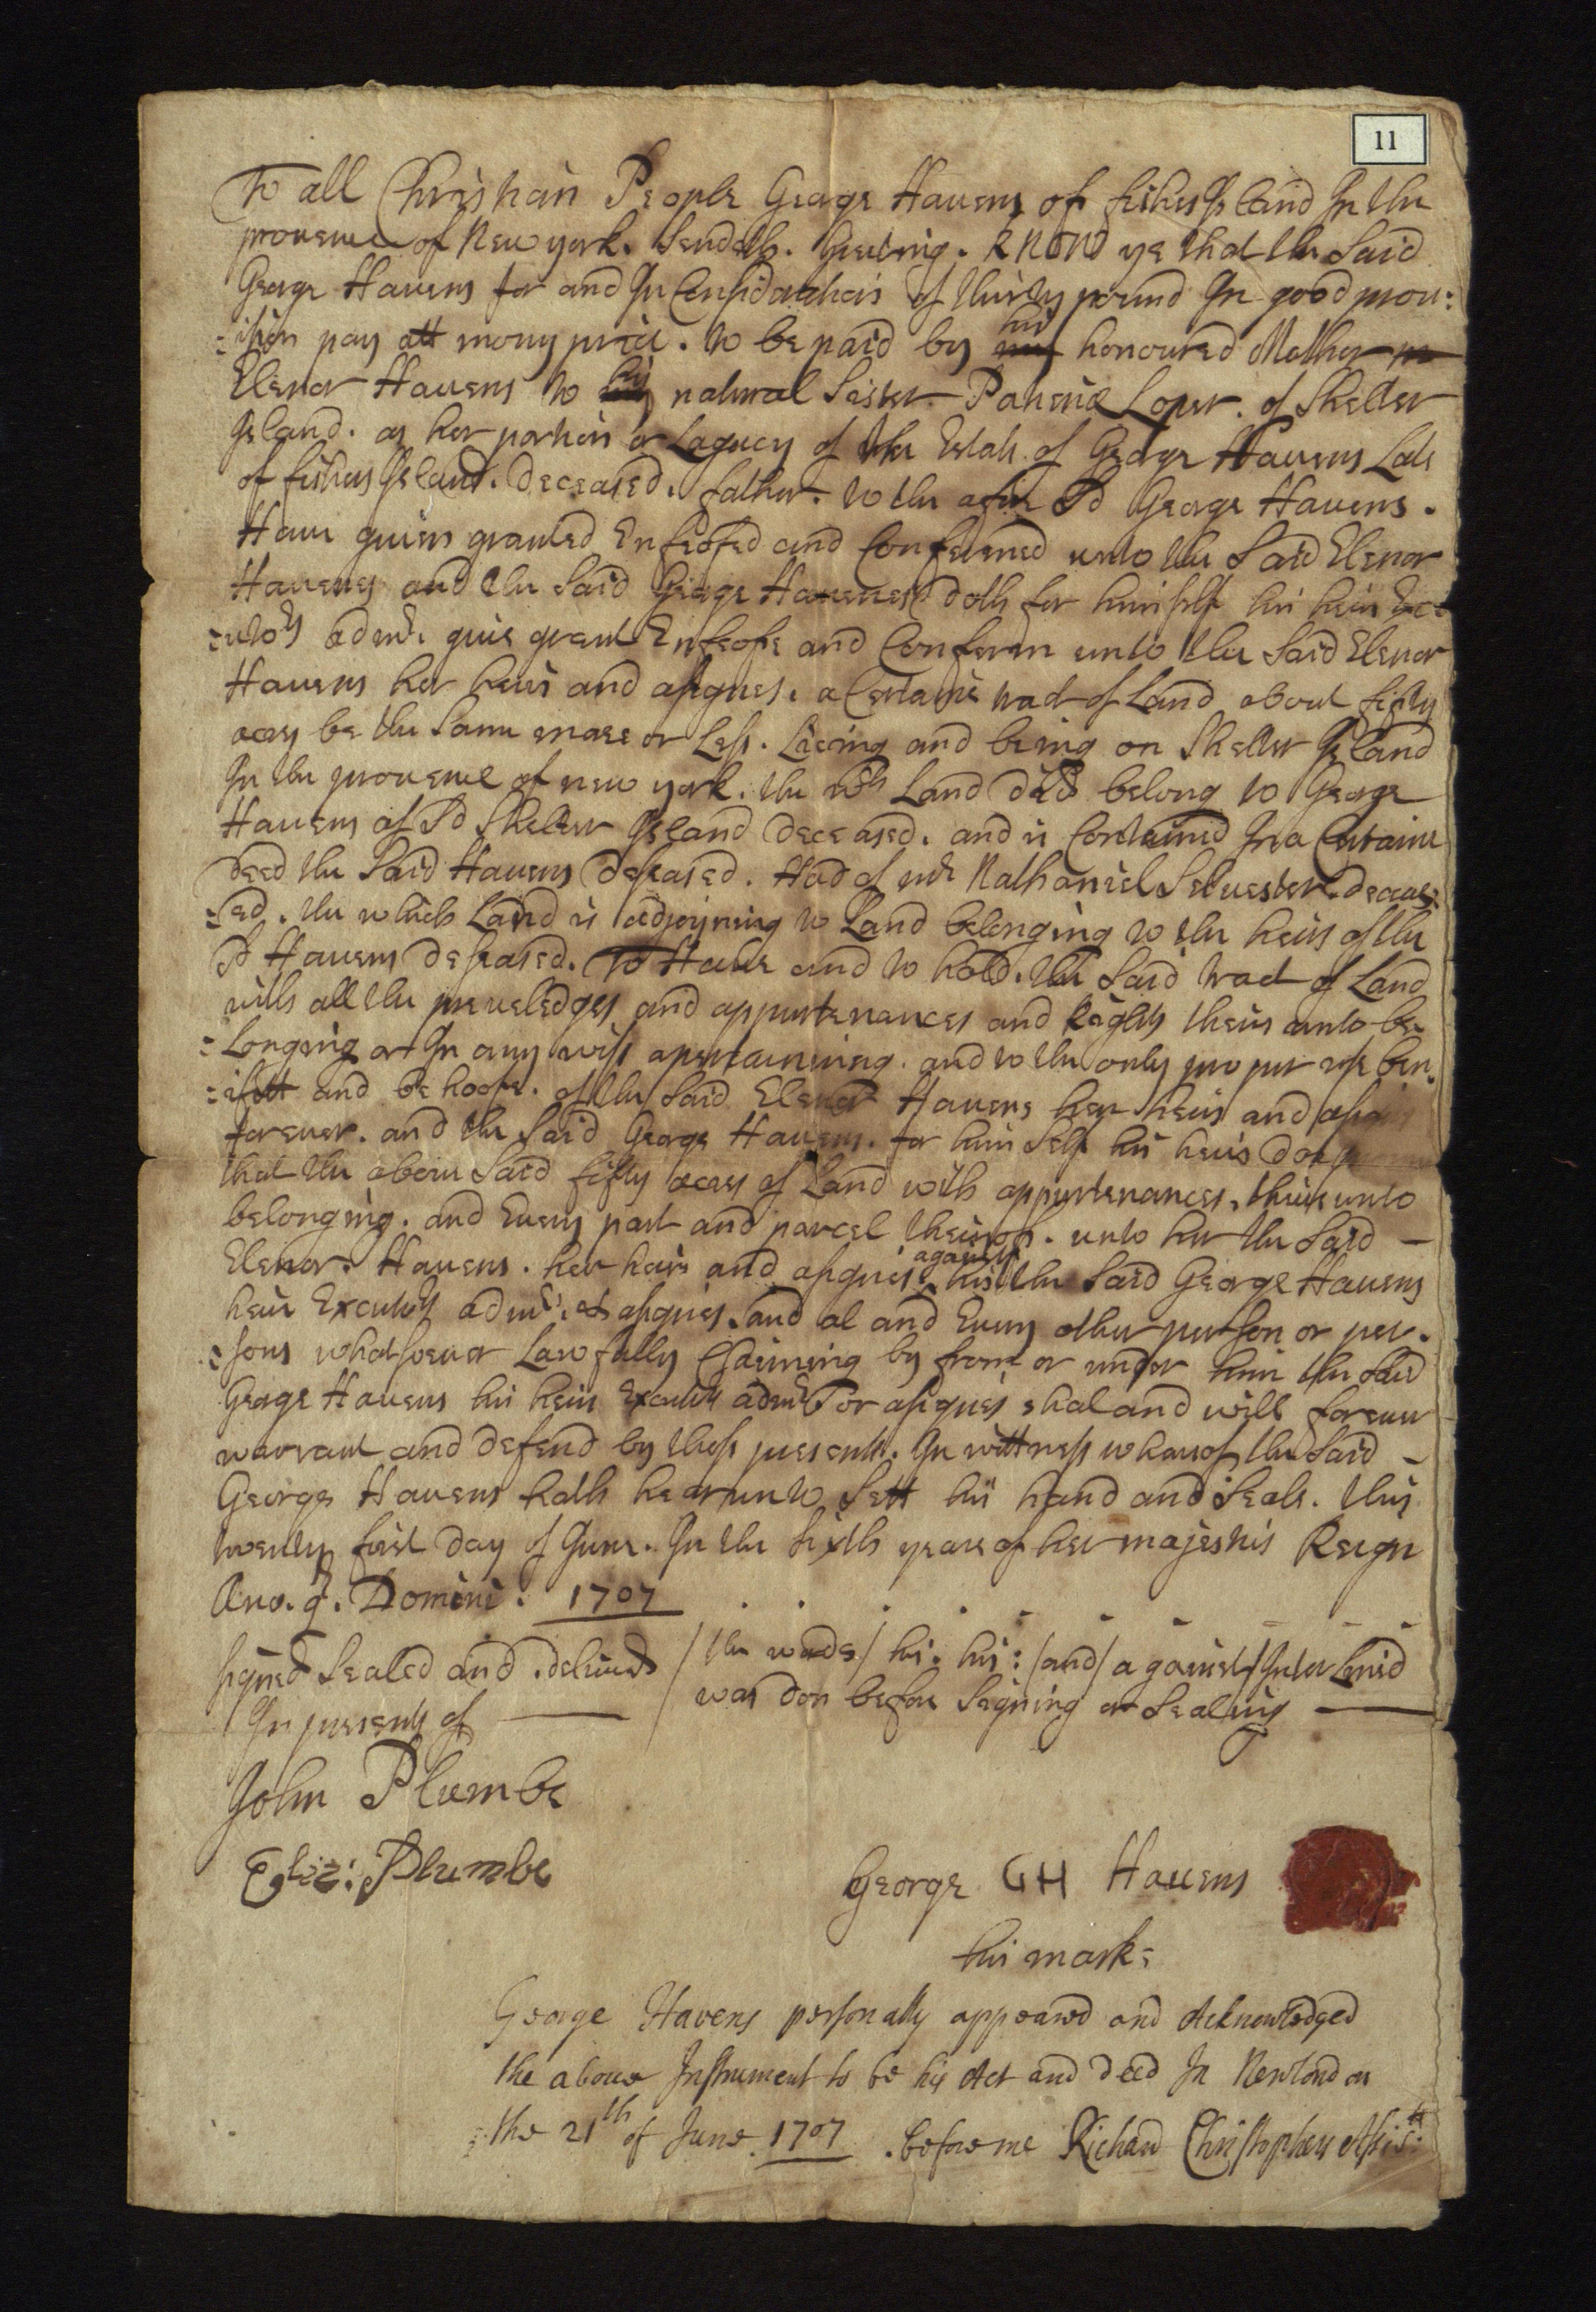 11
To all Christian People George Havens of fishers Island In the
provence of New york. Sendeth. Greeting. KNOW ye that the Said
George Havens for and In Considerdation of thirty pound In good prov:
:ision pay att mony price. to be paid by his honoured Mother
Elenor Havens to his natural Sister Patience Loper. of Shelter
Island. as her portion or Legucy of the Estate of George Havens Late
of fishers Island. deceased. father. to the afore Sd George Havens.
Have given granted Enfeofed and Confermed unto the Said Elenor
Havenes and the Said George Havenes doth for himself his heirs Exec
:utors admrs. give grant Enfeofe and Conferm unto the Said Elenor
Havens her heirs and assignes. a Certaine tract of Land about fifty
acres be the Same more or Less. Lieing and being on Shelter Island
In the provence of new york. the wch Land did belong to George
Havens of Sd Shelter Island deceased. and is Contained In a Certaine
deed the Said Havens deseased. Had of mr Nathaniel Selvester deceas:
:ed. the which Land is adjoyning to Land belonging to the heirs of the
Sd Havens deseased. To Have and to hold. the Said tract of Land
with all the preveledges and appurtenances and Rights theirunto be-
:Longing or In any wise apertaining. and to the only proper use ben:
:ifitt and behoofe. of the Said Elenor Havens her heirs and
forever. and the Said George Havens. for him Self his heirs doth
that the above Said fifty acres of Land with appurtenances. theirunto
belonging. and Every part and parcel theirof. unto her the Said –
Elenor. Havens. her heirs and assignes against his the Said George Havens
heirs Executrs admrs. & assignes. and al and Every other person or per-
:sons whatsoever Lawfully Claiming by from or under him the Said
George Havens his heirs Executrs admrs or assignes shal and will forever
warrant and defend by these presents. In wittness whereof the Said –
George Havens hath hearunto Sett his hand and Seale. this
twenty first day of June. In the Sixth yeare of her majesties Reign
Ano. q. Domini. 1707
Signed Sealed and delivered / the words / his: his: / and / against / Interlined
In presents of — / was don before Segning or Sealing —
John Plumbe
Eliz: Plumbe
George GH Havens
his mark:
George Havens personally appeared and Acknowledged
the above Instrument to be his Act and deed In Newlondon
the 21th of June 1707. before me Richard Christophers Assistt